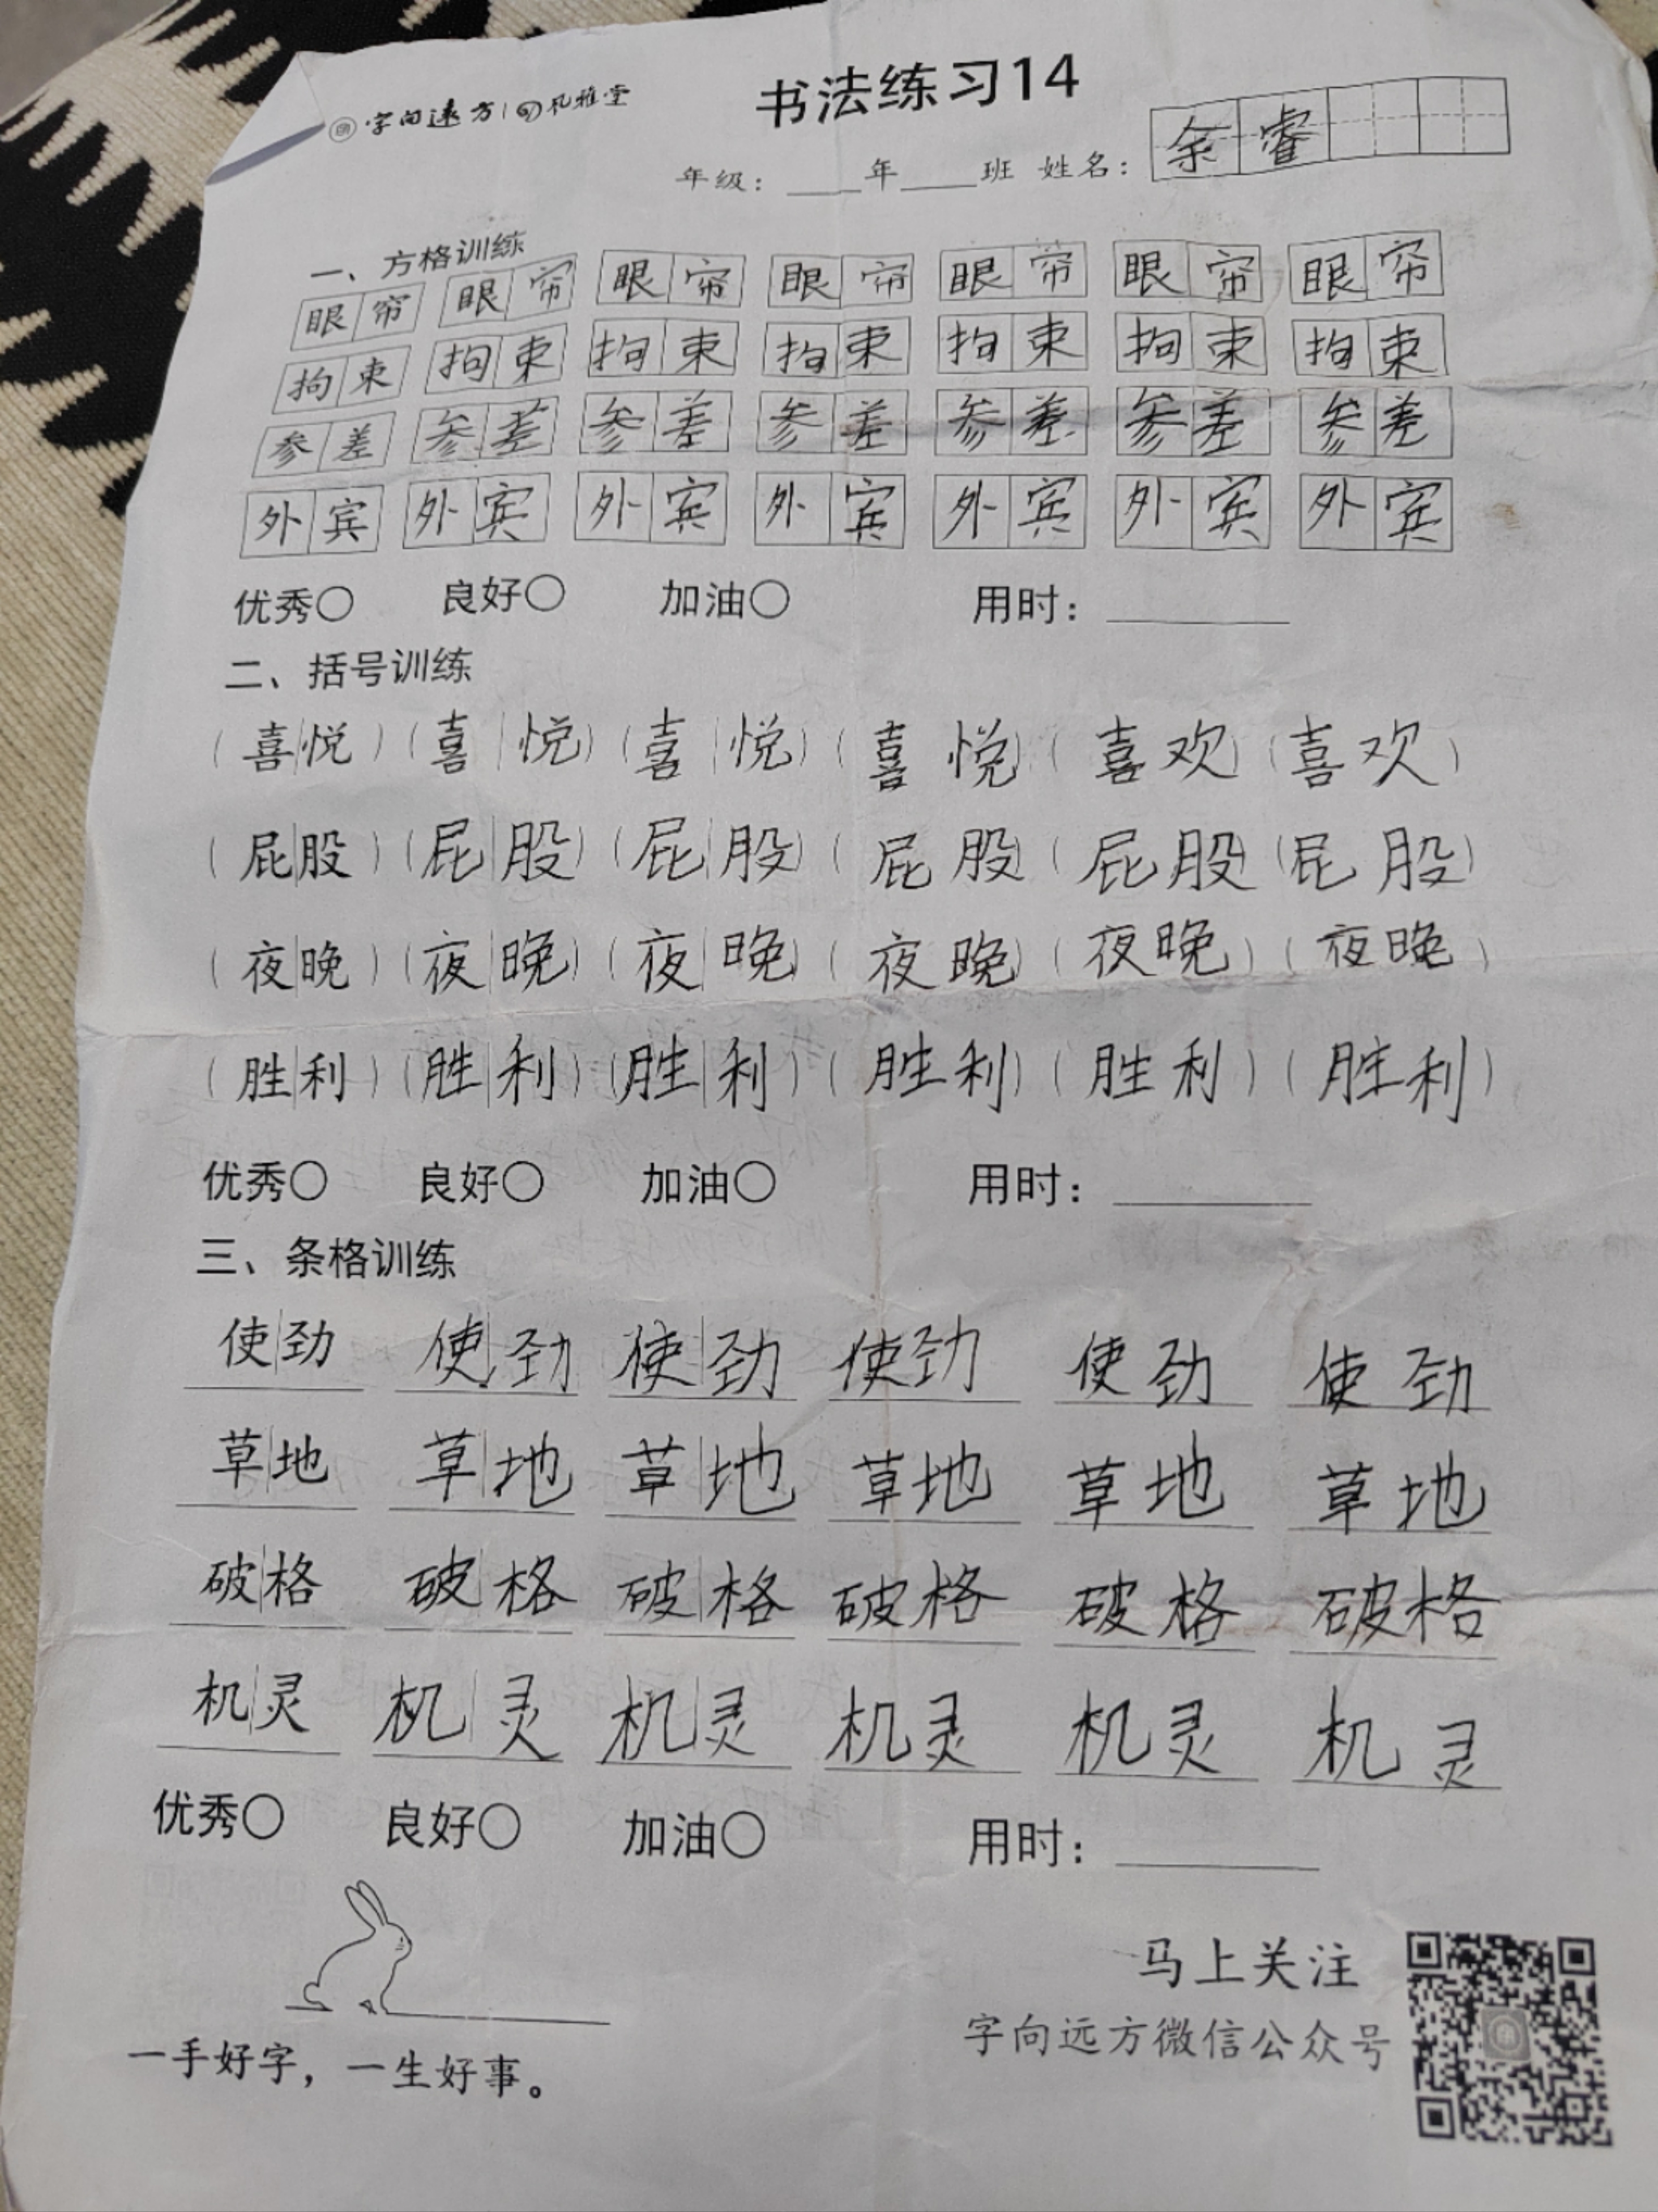 字向远方 | 孔雅堂
书法练习14
年级：____年____班 姓名： 余睿
一、方格训练
眼帘 眼帘 眼帘 眼帘 眼帘 眼帘 眼帘
拘束 拘束 拘束 拘束 拘束 拘束 拘束
参差 参差 参差 参差 参差 参差 参差
外宾 外宾 外宾 外宾 外宾 外宾 外宾
优秀○ 良好○ 加油○ 用时：______
二、括号训练
（喜悦）（喜悦）（喜悦）（喜悦）（喜欢）（喜欢）
（屁股）（屁股）（屁股）（屁股）（屁股）（屁股）
（夜晚）（夜晚）（夜晚）（夜晚）（夜晚）（夜晚）
（胜利）（胜利）（胜利）（胜利）（胜利）（胜利）
优秀○ 良好○ 加油○ 用时：______
三、条格训练
使劲 使劲 使劲 使劲 使劲 使劲
草地 草地 草地 草地 草地 草地
破格 破格 破格 破格 破格 破格
机灵 机灵 机灵 机灵 机灵 机灵
优秀○ 良好○ 加油○ 用时：______
马上关注
字向远方微信公众号
一手好字，一生好事。